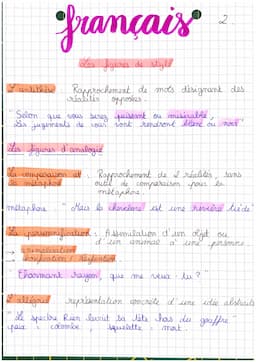 français 2
Les figures de style
L'antithèse : Rapprochement de mots désignant des
réalités opposées.
"Selon que vous serez puissant ou misérable,
Les jugements de cour vous rendront blanc ou noir"
Les figures d'analogie
La comparaison et : Rapprochement de 2 réalités, sans
la métaphore outil de comparaison pour la
métaphore.
métaphore : "Mais ta chevelure est une rivière tiède"
La personnification : Assimilation d'un objet ou
d'un animal à une personne.
"Charmant rayon, que me veux-tu ?"
L'allégorie représentation concrète d'une idée abstraite
"Le spectre Rien levait sa tête hors du gouffre"
paix : colombe, squelette : mort.